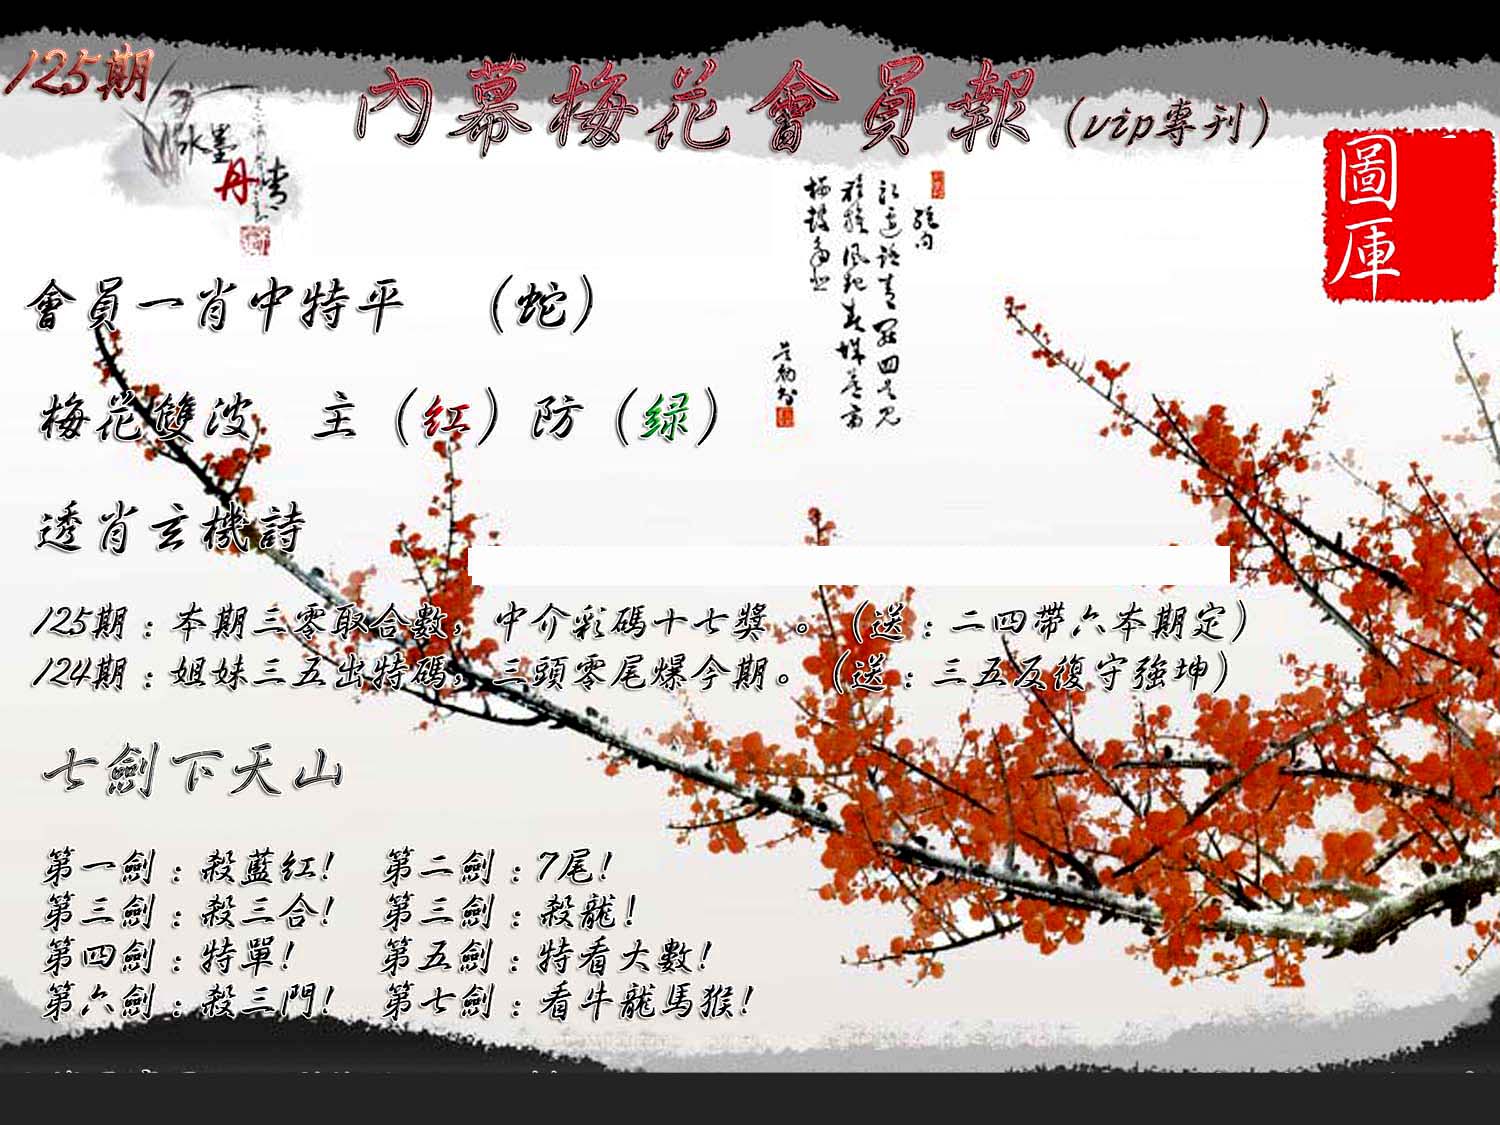 125期
內幕梅花會員報（vip專刊）
水墨
丹青
圖庫
會員一肖中特平 （蛇）
梅花雙波 主（红）防（绿）
透肖玄機詩
125期：本期三零取合數，中介彩碼十七獎 。（送：二四帶六本期定）
124期：姐妹三五出特碼，三頭零尾爆今期。（送：三五反復守強坤）
七劍下天山
第一劍：殺藍紅! 第二劍：7尾!
第三劍：殺三合! 第三劍：殺龍!
第四劍：特單! 第五劍：特看大數!
第六劍：殺三門! 第七劍：看牛龍馬猴!